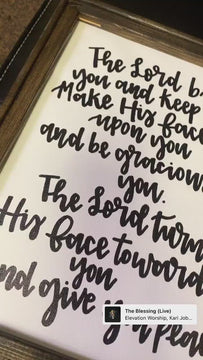 The Lord b
you and keep
Make His face
upon you
and be gracious
you.
The Lord turn
His face toward
you
and give you peac
The Blessing (Live)
Elevation Worship, Kari Job...